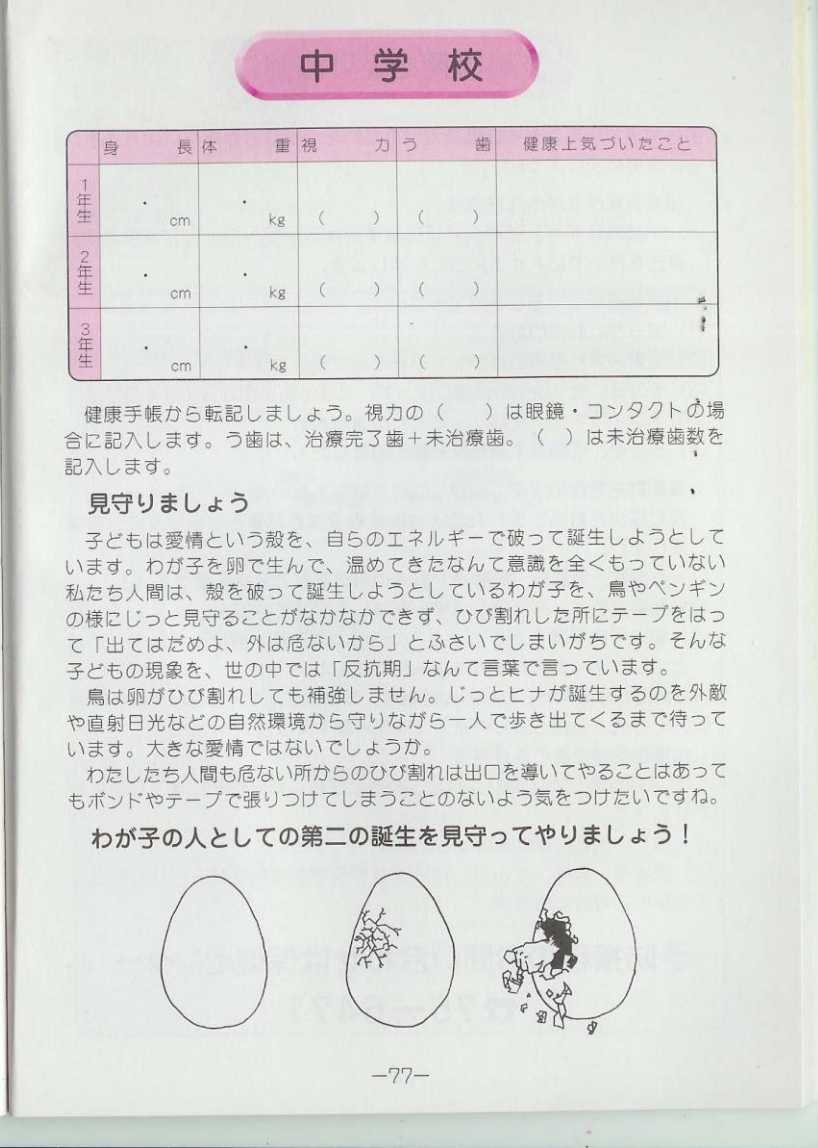 中学校
身長 体重 視力 う歯 健康上気づいたこと
1年生 ・ cm ・ kg ( ) ( )
2年生 ・ cm ・ kg ( ) ( )
3年生 ・ cm ・ kg ( ) ( )
健康手帳から転記しましょう。視力の（　　）は眼鏡・コンタクトの場
合に記入します。う歯は、治療完了歯＋未治療歯。（　）は未治療歯数を
記入します。
見守りましょう
子どもは愛情という殻を、自らのエネルギーで破って誕生しようとして
います。わが子を卵で生んで、温めてきたなんて意識を全くもっていない
私たち人間は、殻を破って誕生しようとしているわが子を、鳥やペンギン
の様にじっと見守ることがなかなかできず、ひび割れした所にテープをはっ
て「出てはだめよ、外は危ないから」とふさいでしまいがちです。そんな
子どもの現象を、世の中では「反抗期」なんて言葉で言っています。
鳥は卵がひび割れしても補強しません。じっとヒナが誕生するのを外敵
や直射日光などの自然環境から守りながら一人で歩き出てくるまで待って
います。大きな愛情ではないでしょうか。
わたしたち人間も危ない所からのひび割れは出口を導いてやることはあって
もボンドやテープで張りつけてしまうことのないよう気をつけたいですね。
わが子の人としての第二の誕生を見守ってやりましょう！
―77―